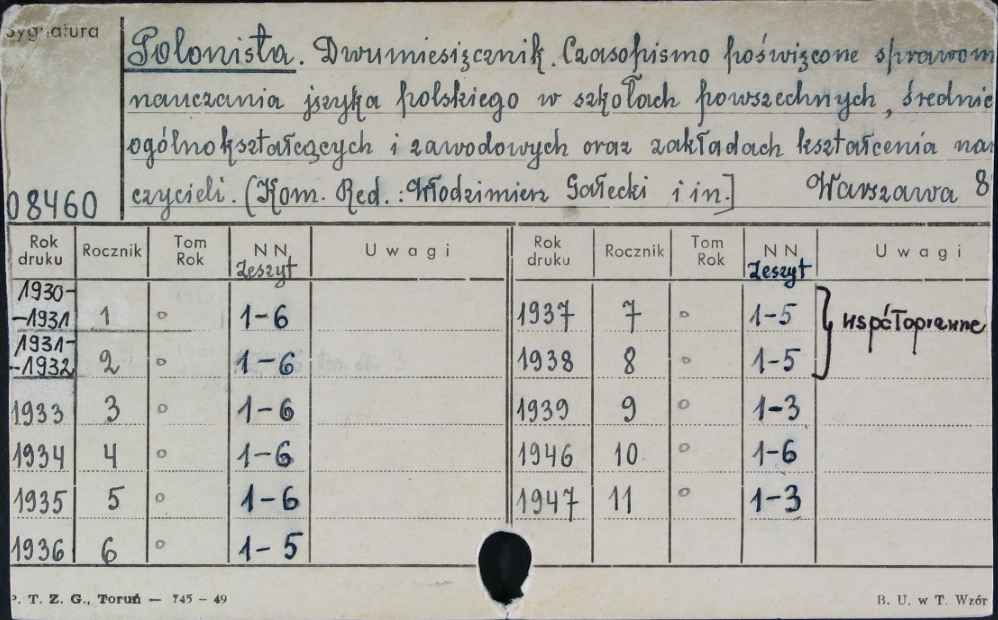 Sygnatura
Polonista. Dwumiesięcznik. Czasopismo poświęcone sprawom
nauczania języka polskiego w szkołach powszechnych, średnic
ogólnokształcących i zawodowych oraz zakładach kształcenia nau
czycieli. (Kom. Red.: Włodzimierz Gałecki i in.] Warszawa 8
08460
Rok druku Rocznik Tom Rok NN Zeszyt Uwagi Rok druku Rocznik Tom Rok NN Zeszyt Uwagi
1930-
-1931 1 o 1-6 1937 7 o 1-5 } współoprawne
1931-
-1932 2 o 1-6 1938 8 o 1-5
1933 3 o 1-6 1939 9 o 1-3
1934 4 o 1-6 1946 10 o 1-6
1935 5 o 1-6 1947 11 o 1-3
1936 6 o 1-5
P. T. Z. G., Toruń — 745 - 49 B. U. w T. Wzór